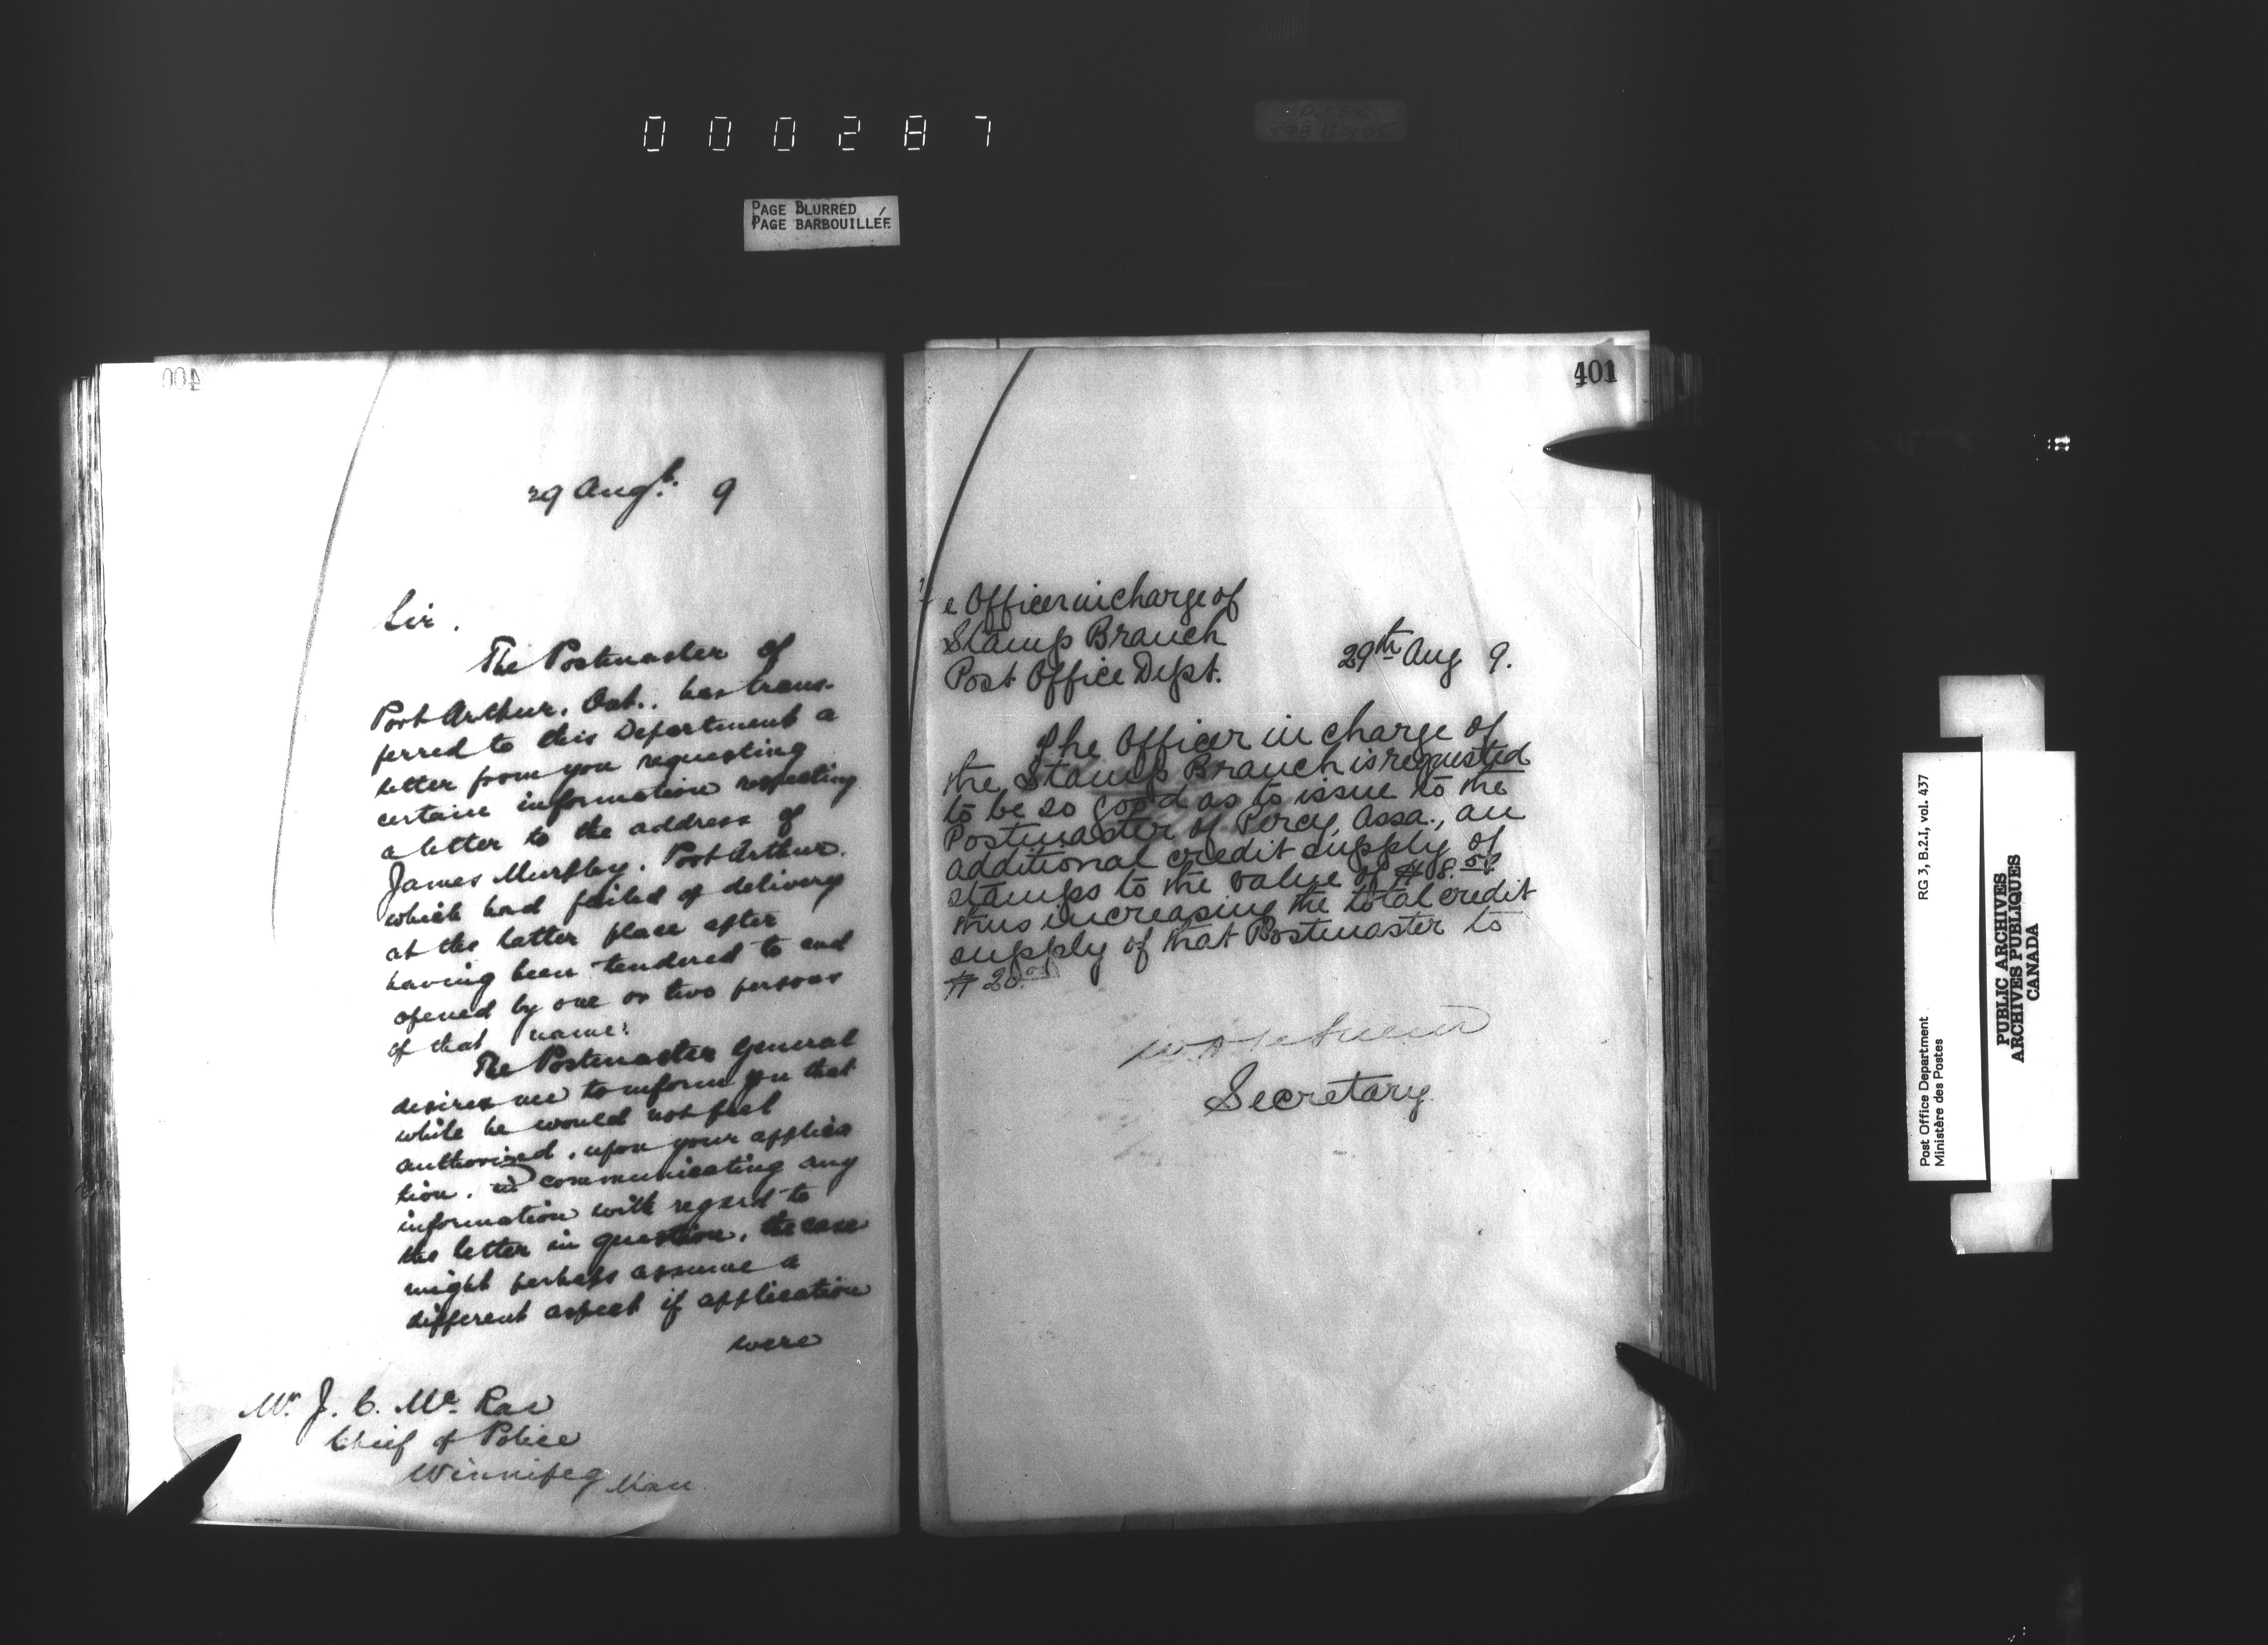 000287
PAGE BLURRED
PAGE BARBOUILLÉE
400
29 Augt. 9
Sir.
The Postmaster of
Port Arthur, Ont., has trans-
ferred to this Department a
letter from you requesting
certain information respecting
a letter to the address of
James Murphy, Port Arthur,
which had failed of delivery
at the latter place after
having been tendered to and
opened by one or two persons
of that name.
The Postmaster General
desires me to inform you that
while he would not feel
authorized, upon your applica
tion, in communicating any
information with regard to
the letter in question, the case
might perhaps assume a
different aspect if application
were
Mr. J. C. Mc Rae
Chief of Police
Winnipeg Man
401
e Officer in charge of
Stamp Branch
Post Office Dept.
29th Aug 9.
The Officer in charge of
the Stamp Branch is requested
to be so good as to issue to the
Postmaster of Percy, Assa., an
additional credit supply of
stamps to the value of $8.
thus increasing the total credit
supply of that Postmaster to
$20.00
Secretary
Post Office Department
Ministère des Postes
RG 3, B.2.I, vol. 437
PUBLIC ARCHIVES
ARCHIVES PUBLIQUES
CANADA